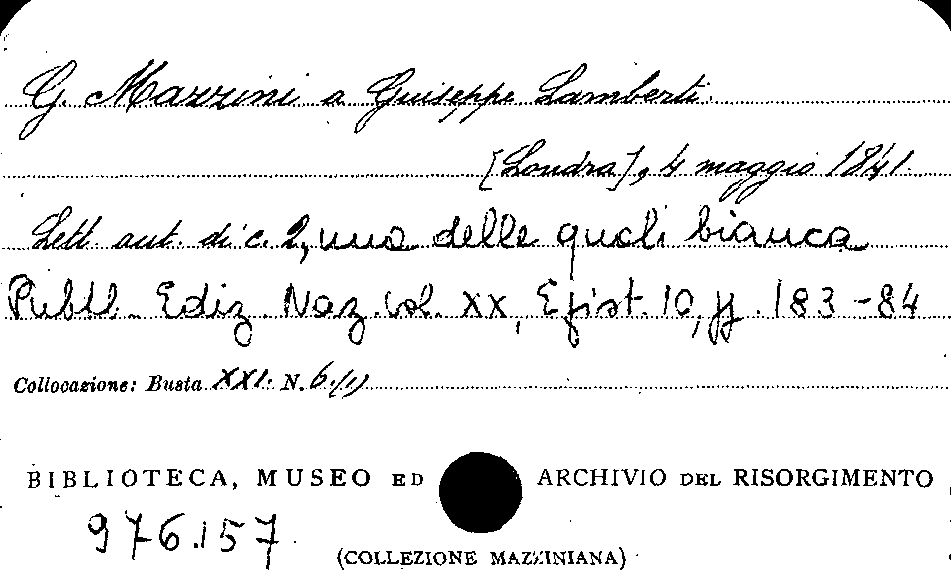 G. Mazzini a Giuseppe Lamberti.
[Londra], 4 maggio 1841.
Lett. aut. di c. 2, una delle quali bianca
Pubbl. Ediz. Naz. vol. XX, Epist. 10, pp. 183-84
Collocazione: Busta XXI. N. 6/(1)
BIBLIOTECA, MUSEO ED ARCHIVIO DEL RISORGIMENTO
976.157
(COLLEZIONE MAZZINIANA)